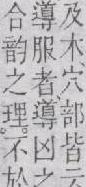 及木穴部皆云
導服者導凶之
合韵之理。不於